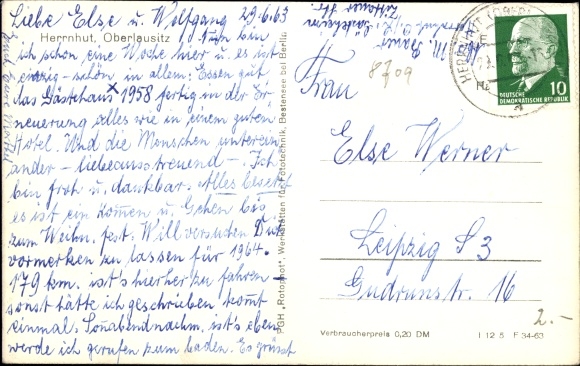 Liebe Else u. Wolfgang 29.6.63
Herrnhut, Oberlausitz
Nun bin
ich schon eine Woche hier u. es ist
einzig-schön in allem: Essen gut
das Gästehaus x 1958 fertig in der Er
neuerung alles wie in einem guten
Hotel. Und die Menschen unterein
ander - liebeausstreuend - Ich
bin froh u. dankbar. Alles besetzt
es ist ein Kommen u. Gehen bis
zum Weihn. fest. Will versuchen Dich
vormerken zu lassen für 1964.
179 km. ist's hierher zu fahren
sonst hätte ich geschrieben kommt
einmal. Sonabendnachm. ist's eben
werde ich gerufen zum baden. Es grüsst
PGH „Rotophot", Werkstätten für Fototechnik, Bestensee bei Berlin.
8709
HERRNHUT
10
DEUTSCHE
DEMOKRATISCHE REPUBLIK
Frau
Else Werner
Leipzig S 3
Gudrunstr. 16
2.-
Verbraucherpreis 0,20 DM
I 12 5 F 34-63